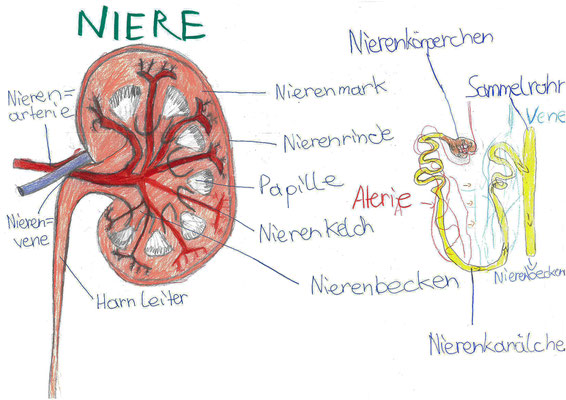 NIERE
Nieren=
arterie
Nieren=
vene
Harnleiter
Nierenmark
Nierenrinde
Papille
Nierenkelch
Nierenbecken
Nierenkörperchen
Sammelrohr
Vene
Aterie
A
Nierenbecken
Nierenkanälche